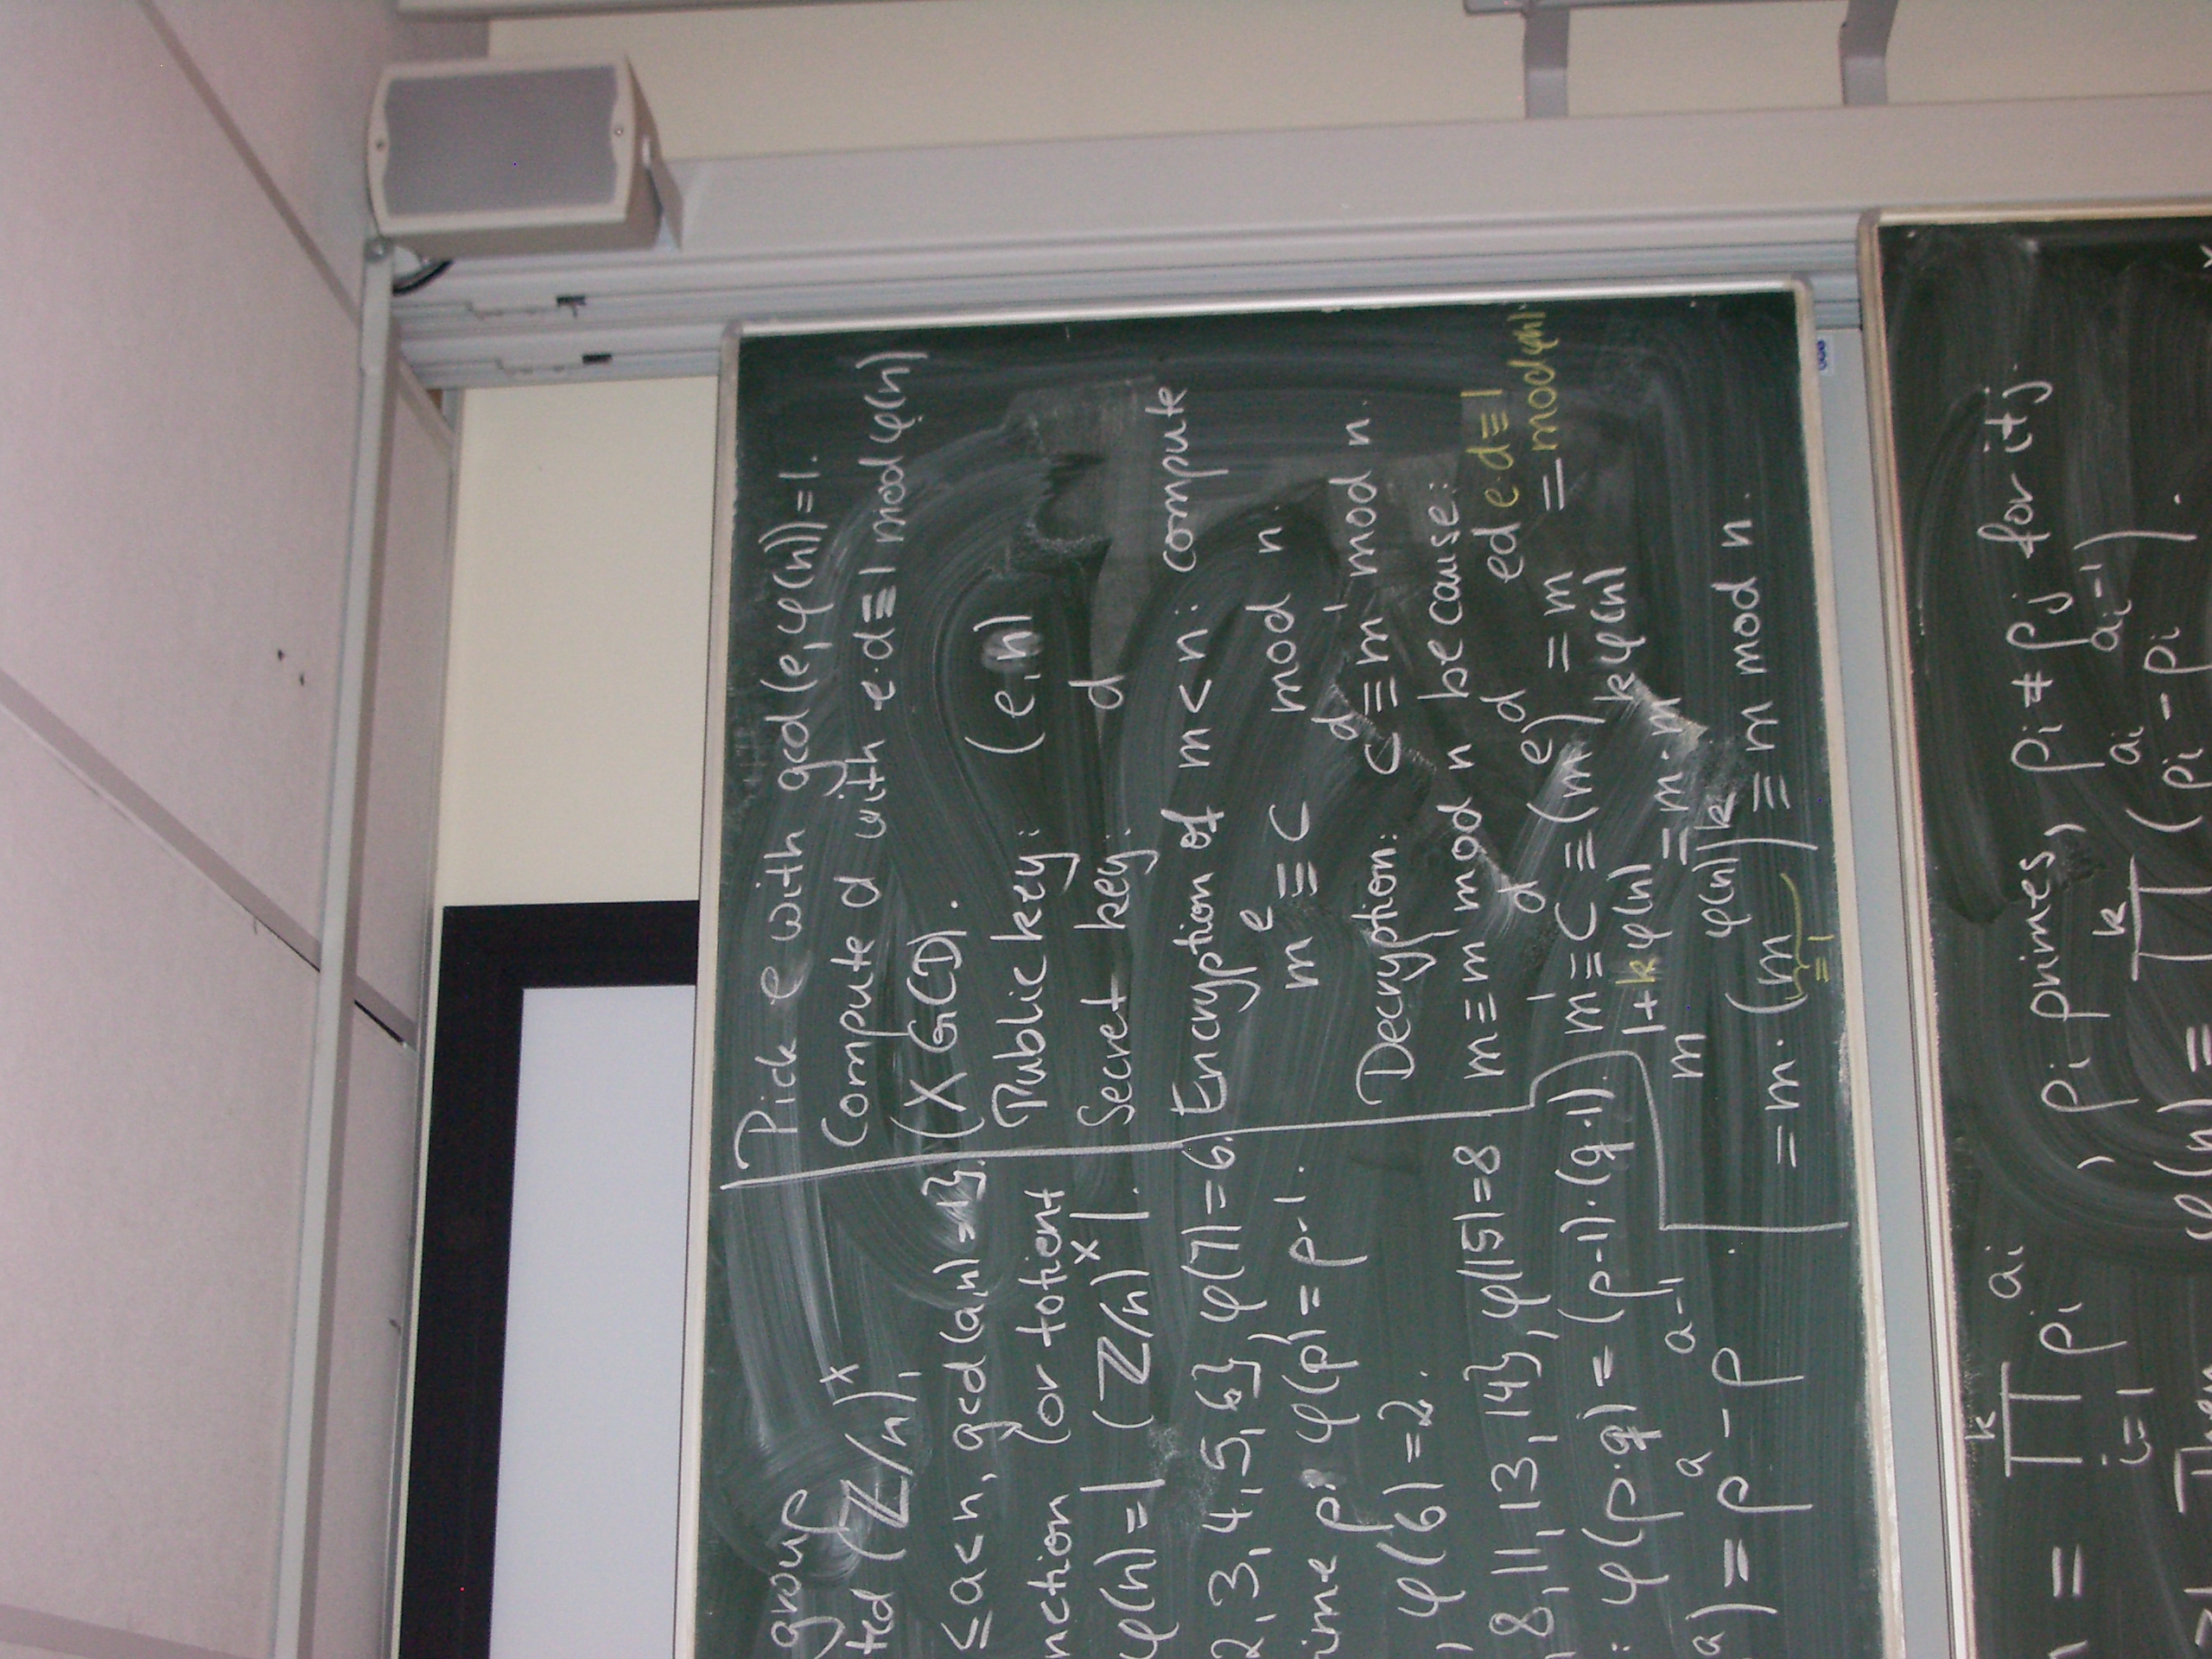 group
ted (Z/n)^×,
≤ a < n, gcd(a,n)=1}.
nction (or totient
φ(n) = | (Z/n)^× |.
2,3,4,5,6}, φ(7)=6.
ime p: φ(p) = p-1.
, φ(6)=2.
8,11,13,14}, φ(15)=8
: φ(p·q) = (p-1)·(q-1).
a) = p^a - p^{a-1}.
Pick e with gcd(e,φ(n))=1.
Compute d with e·d≡1 mod φ(n)
(XGCD).
Public key: (e,n)
Secret key: d
Encryption of m<n: compute
m^e ≡ c mod n.
Decryption: c^d ≡ m' mod n.
m≡m' mod n because:
m' ≡ c^d ≡ (m^e)^d = m^{ed} =
e·d≡1
mod φ(n)
m^{1+kφ(n)} = m·m^{kφ(n)}
= m·(m^{φ(n)})^k ≡ m mod n.
≡1
n = ∏_{i=1}^{k} p_i^{a_i}, p_i primes, p_i ≠ p_j for i≠j.
Then φ(n) = ∏^{k} (p_i^{a_i} - p_i^{a_i-1}).